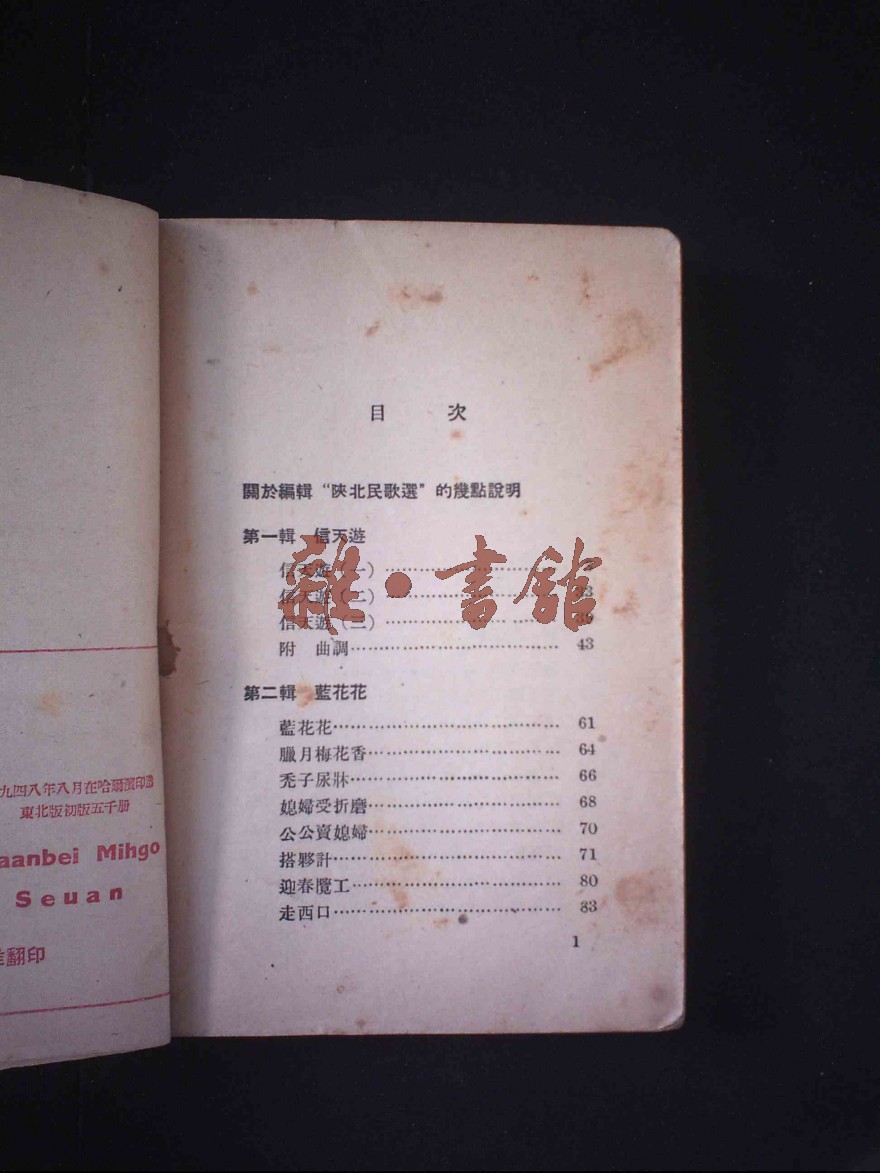 九四八年八月在哈爾濱印造
東北版初版五千册
aanbei Mihgo
Seuan
翻印
目 次
關於編輯“陝北民歌選”的幾點說明
第一輯 信天遊
信天遊(一)
信天遊(二)
信天遊(三)
附 曲調 43
第二輯 藍花花
藍花花 61
臘月梅花香 64
禿子尿牀 66
媳婦受折磨 68
公公賣媳婦 70
搭夥計 71
迎春攬工 80
走西口 83
1
雜·書館